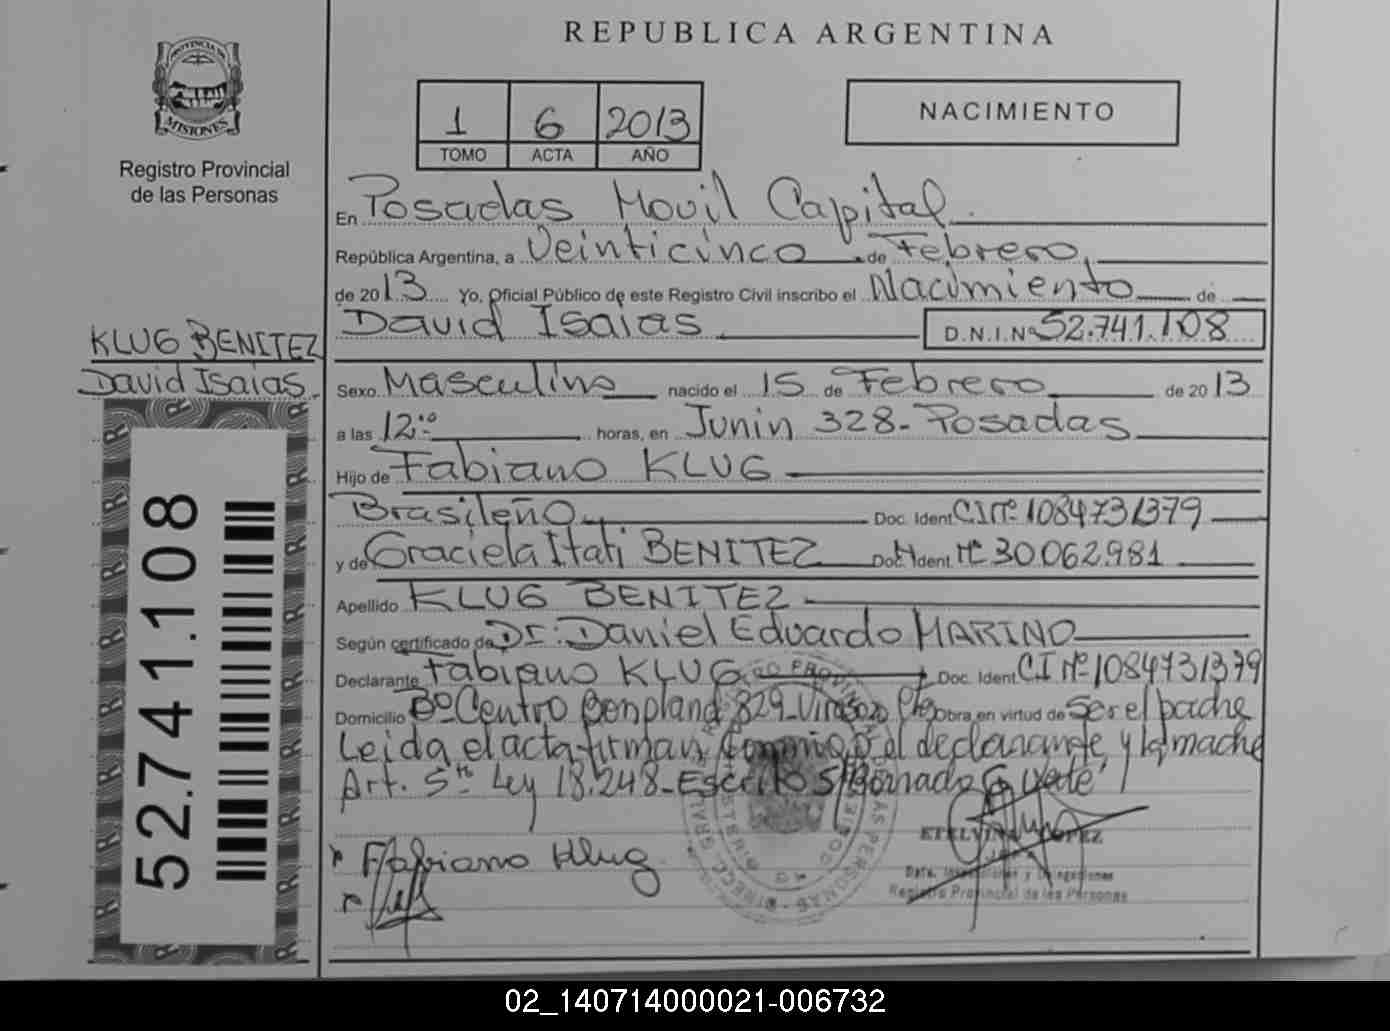 REPUBLICA ARGENTINA
PROVINCIA DE
MISIONES
Registro Provincial
de las Personas
1 6 2013
TOMO ACTA AÑO
NACIMIENTO
En Posadas Movil Capital
República Argentina, a Veinticinco de Febrero
de 2013 Yo, Oficial Público de este Registro Civil inscribo el Nacimiento de
David Isaias D.N.I.Nº 52.741.108
KLUG BENITEZ
David Isaias
52.741.108
Sexo Masculino nacido el 15 de Febrero de 2013
a las 12:º horas, en Junin 328- Posadas
Hijo de Fabiano KLUG
Brasileño Doc. Ident CI Nº 1084731379
y de Graciela Itati BENITEZ Doc. Ident Nº 30.062.981
Apellido KLUG BENITEZ
Según certificado de Dr. Daniel Eduardo MARINO
Declarante Fabiano KLUG Doc. Ident CI Nº 1084731379
Domicilio Bº Centro Bonpland 829- Obra en virtud de Ser el padre
Leida el acta firman conmigo el declarante, y la madre
Art. 5to Ley 18.248- Escrito
Fabiano Klug
ETELVINA LOPEZ
Registro Provincial de las Personas
02_140714000021-006732